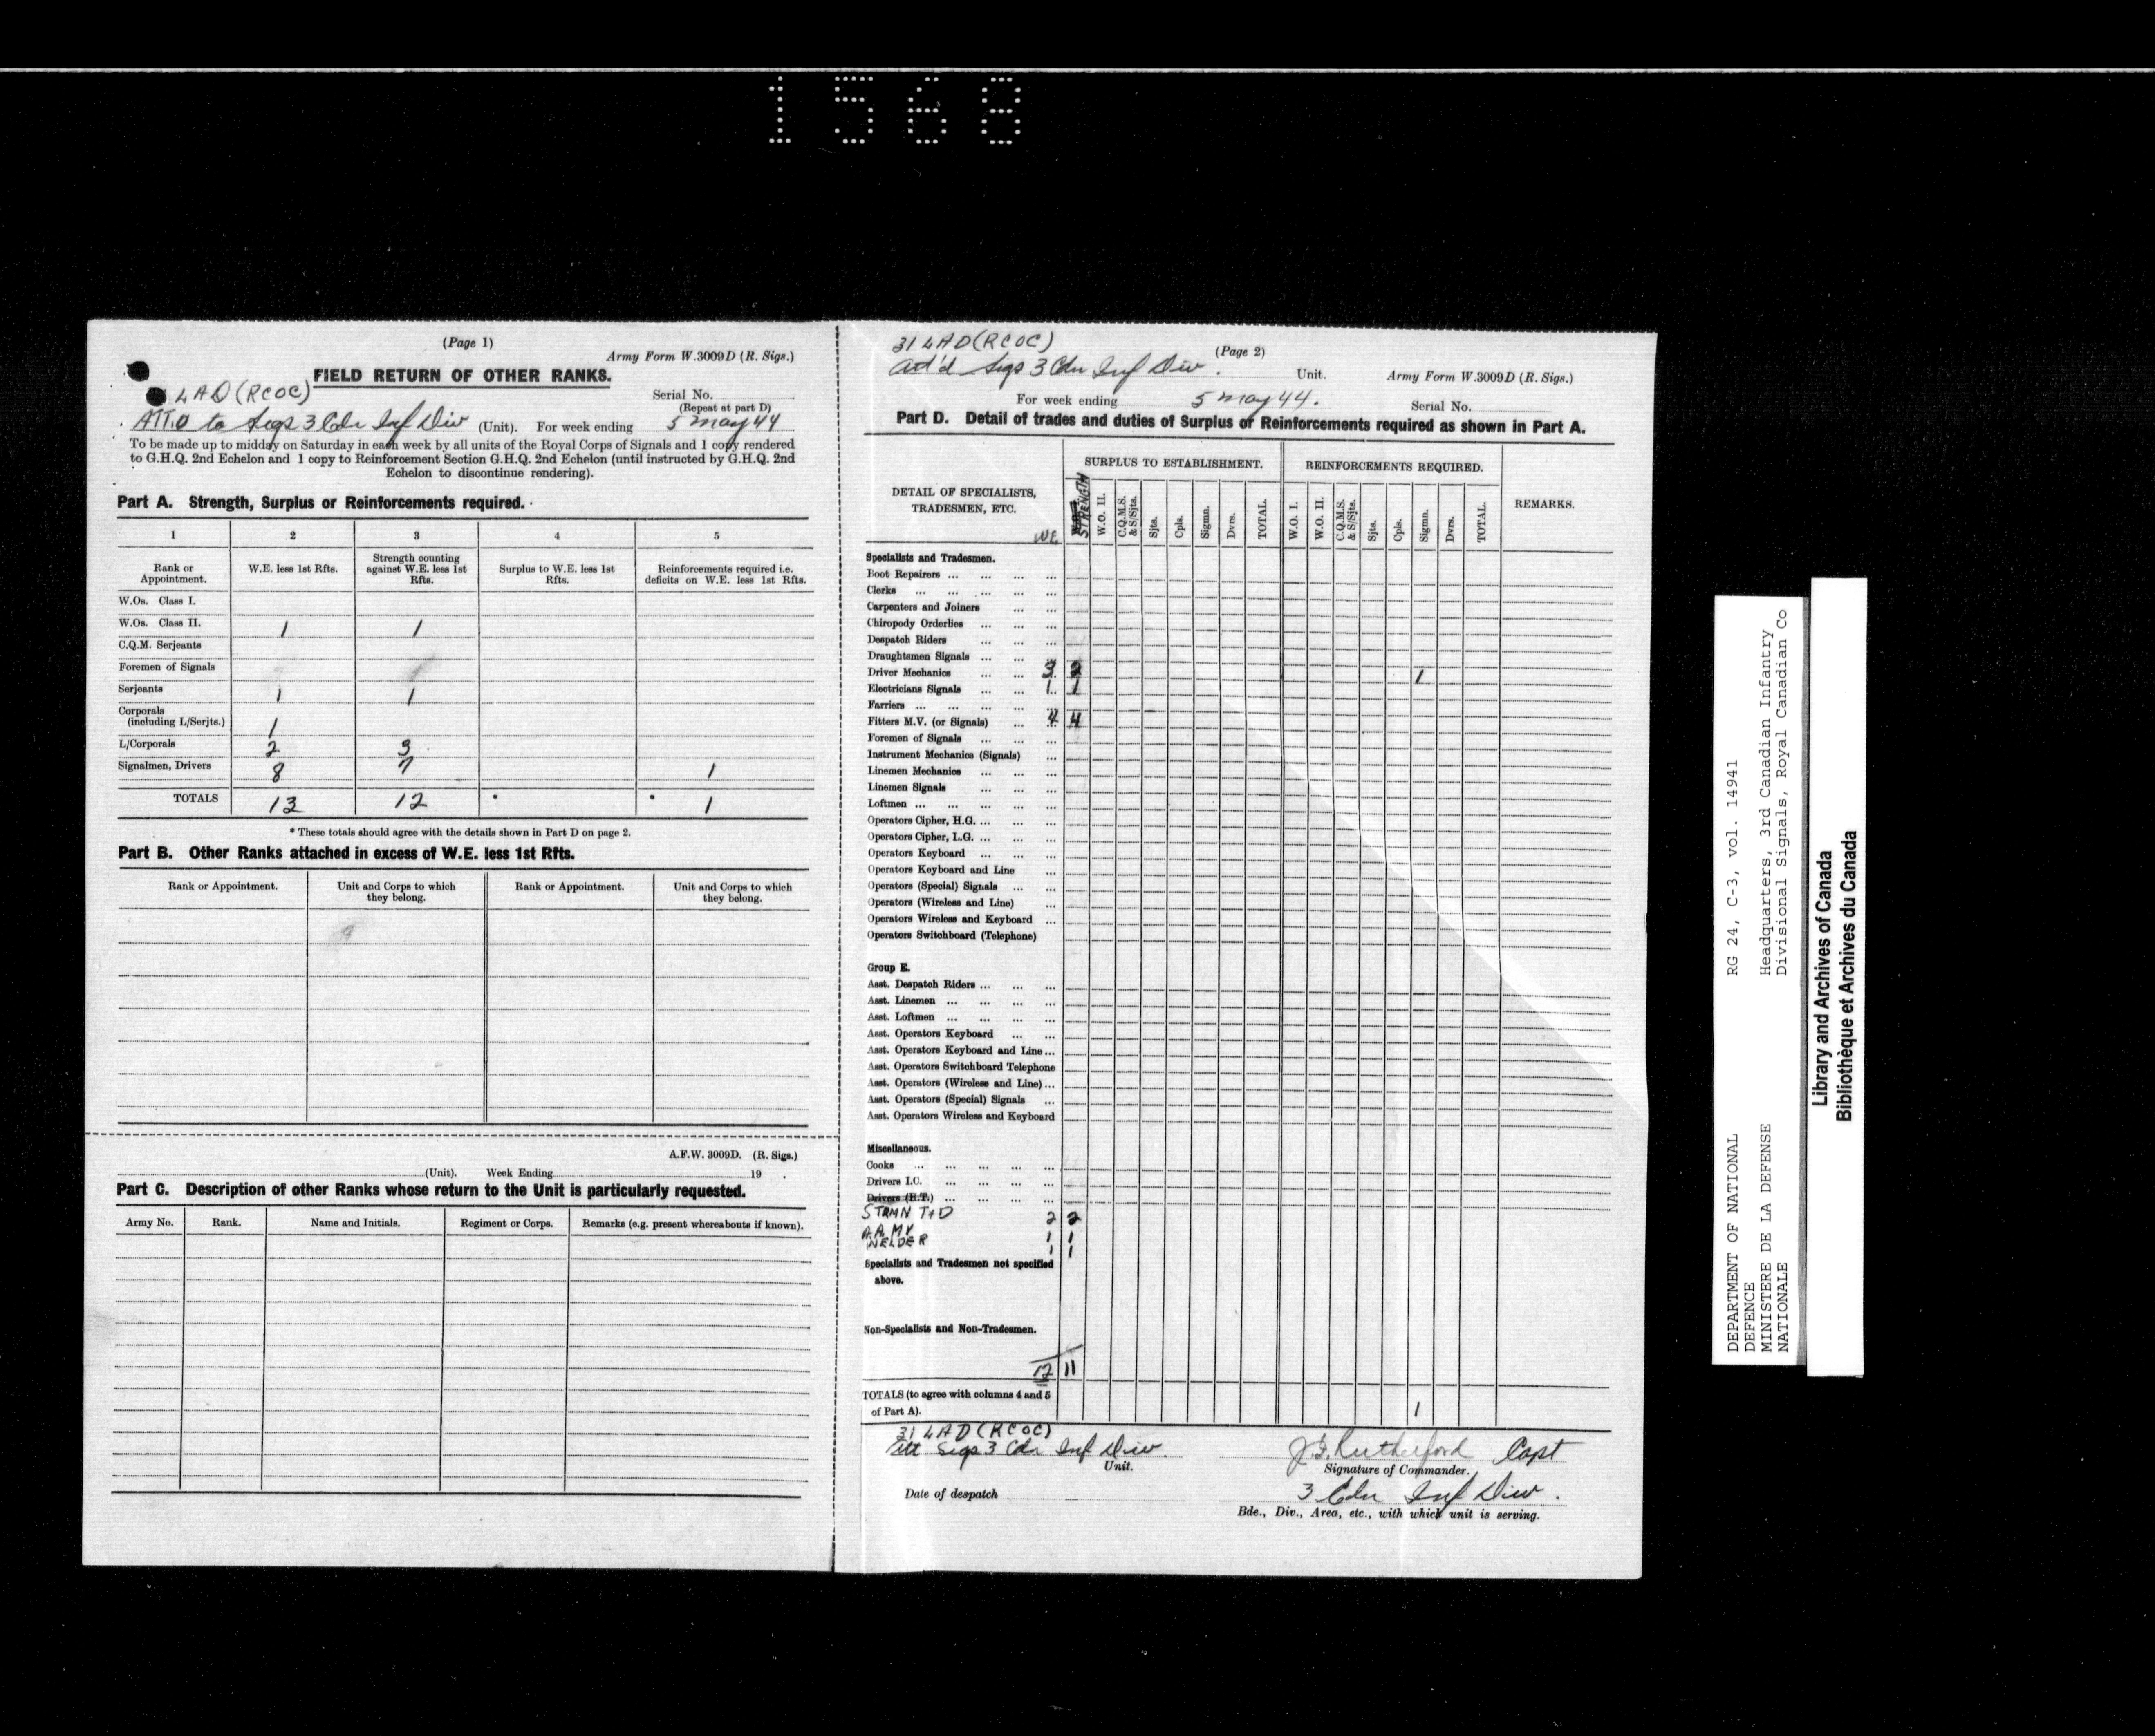 1568
(Page 1)
Army Form W.3009D (R. Sigs.)
FIELD RETURN OF OTHER RANKS.
LAD (RCOC)
Serial No.
(Repeat at part D)
ATT.D to Sigs 3 Cdn Inf Div (Unit). For week ending 5 May 44
To be made up to midday on Saturday in each week by all units of the Royal Corps of Signals and 1 copy rendered
to G.H.Q. 2nd Echelon and 1 copy to Reinforcement Section G.H.Q. 2nd Echelon (until instructed by G.H.Q. 2nd
Echelon to discontinue rendering).
Part A. Strength, Surplus or Reinforcements required.
1 2 3 4 5
Rank or Appointment. W.E. less 1st Rfts. Strength counting against W.E. less 1st Rfts. Surplus to W.E. less 1st Rfts. Reinforcements required i.e. deficits on W.E. less 1st Rfts.
W.Os. Class I.
W.Os. Class II. 1 1
C.Q.M. Serjeants
Foremen of Signals
Serjeants 1 1
Corporals
(including L/Serjts.) 1
L/Corporals 2 3
Signalmen, Drivers 8 7 1
TOTALS 13 12 * * 1
* These totals should agree with the details shown in Part D on page 2.
Part B. Other Ranks attached in excess of W.E. less 1st Rfts.
Rank or Appointment. Unit and Corps to which they belong. Rank or Appointment. Unit and Corps to which they belong.
A.F.W. 3009D. (R. Sigs.)
(Unit). Week Ending 19 .
Part C. Description of other Ranks whose return to the Unit is particularly requested.
Army No. Rank. Name and Initials. Regiment or Corps. Remarks (e.g. present whereabouts if known).
31 LAD (RCOC)
(Page 2)
Att'd Sigs 3 Cdn Inf Div. Unit. Army Form W.3009D (R. Sigs.)
For week ending 5 May 44. Serial No.
Part D. Detail of trades and duties of Surplus or Reinforcements required as shown in Part A.
DETAIL OF SPECIALISTS, TRADESMEN, ETC. SURPLUS TO ESTABLISHMENT. REINFORCEMENTS REQUIRED. REMARKS.
WE STRENGTH W.O. II. C.Q.M.S. & S/Sjts. Sjts. Cpls. Sigmn. Dvrs. TOTAL. W.O. I. W.O. II. C.Q.M.S. & S/Sjts. Sjts. Cpls. Sigmn. Dvrs. TOTAL.
Specialists and Tradesmen.
Boot Repairers ... ... ... ...
Clerks ... ... ... ... ...
Carpenters and Joiners ... ...
Chiropody Orderlies ... ... ...
Despatch Riders ... ... ...
Draughtsmen Signals ... ... ...
Driver Mechanics ... ... 3 2 1
Electricians Signals ... ... 1 1
Farriers ... ... ... ... ...
Fitters M.V. (or Signals) ... 4 4
Foremen of Signals ... ... ...
Instrument Mechanics (Signals) ...
Linemen Mechanics ... ... ...
Linemen Signals ... ... ...
Loftmen ... ... ... ... ...
Operators Cipher, H.G. ... ... ...
Operators Cipher, L.G. ... ... ...
Operators Keyboard ... ... ...
Operators Keyboard and Line ...
Operators (Special) Signals ... ...
Operators (Wireless and Line) ...
Operators Wireless and Keyboard ...
Operators Switchboard (Telephone)
Group E.
Asst. Despatch Riders ... ... ...
Asst. Linemen ... ... ... ...
Asst. Loftmen ... ... ... ...
Asst. Operators Keyboard ... ...
Asst. Operators Keyboard and Line ...
Asst. Operators Switchboard Telephone
Asst. Operators (Wireless and Line) ...
Asst. Operators (Special) Signals ...
Asst. Operators Wireless and Keyboard
Miscellaneous.
Cooks ... ... ... ... ...
Drivers I.C. ... ... ... ...
Drivers (H.T.) ... ... ... ...
STRMN T+D 2 2
1 1
WELDER 1 1
Specialists and Tradesmen not specified
above.
Non-Specialists and Non-Tradesmen.
12 11
TOTALS (to agree with columns 4 and 5
of Part A). 1
31 LAD (RCOC)
Att Sigs 3 Cdn Inf Div.
Unit.
Rutherford Capt
Signature of Commander.
Date of despatch
3 Cdn Inf Div.
Bde., Div., Area, etc., with which unit is serving.
DEPARTMENT OF NATIONAL DEFENCE
MINISTERE DE LA DEFENSE NATIONALE
RG 24, C-3, vol. 14941
Headquarters, 3rd Canadian Infantry
Divisional Signals, Royal Canadian Co
Library and Archives of Canada
Bibliothèque et Archives du Canada